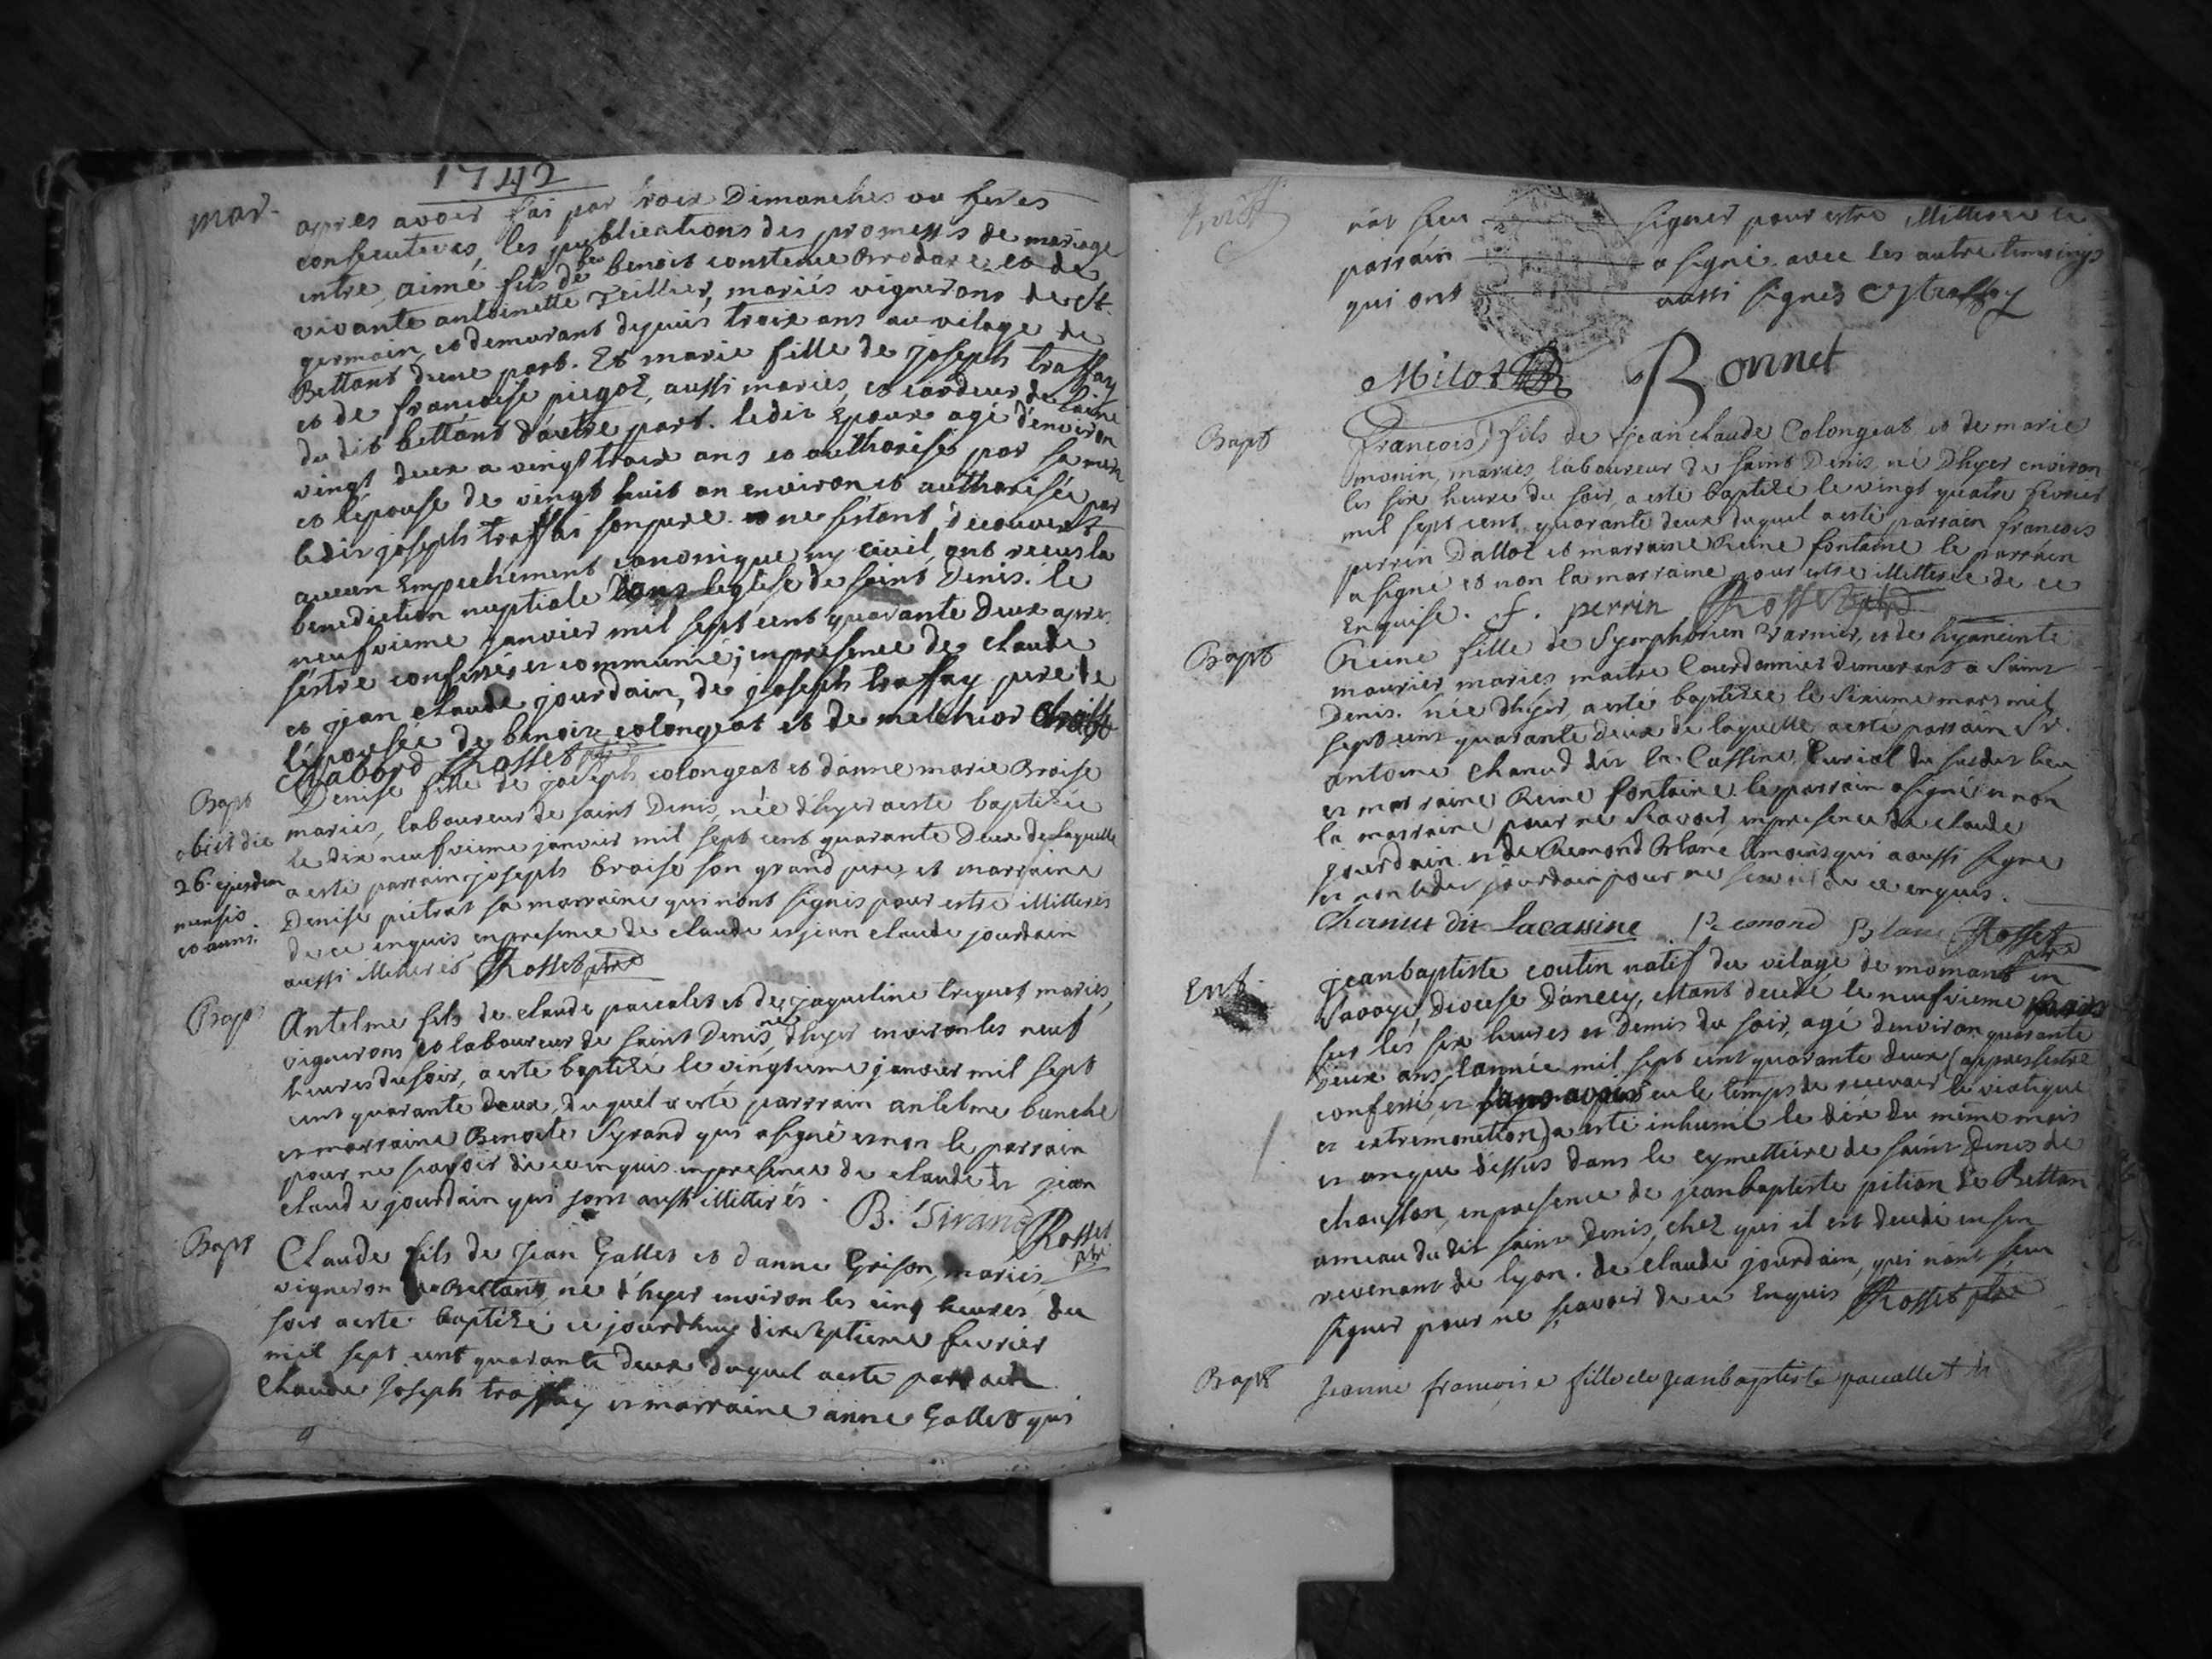 1742
mar.
apres avoir fai par trois Dimanches ou festes
consecutives, les publications des promesses de mariage
entre aimé fils de feu benoit constence Brodare et de
vivante antoinette Teillier, mariés vignerons de St.
germain et demurant depuis troix ans au vilage de
Bettant d'une part. Et marie fille de joseph traffay
et de francoise piegoz, aussi mariés, et cardeur de laine
du dit bettant d'autre part. ledit Epoux agé d'environ
vingt deux a vingt troix ans et authorisé par sa mere
et l'epouse de vingt huit an environ et authorisée par
ledit joseph traffai son pere. ne s'estant decouvert
aucun Empechement canonique ny civil, ont receu la
benediction nuptiale dans leglise de saint Denis. le
neufvieme janvier mil sept cent quarante deux apres
s'estre confessés et communié; en presence de claude
et jean claude jourdain, de joseph traffay pere de
l'épousée de benoit colongeat et de melchior
Chabord Rosset ptre
Bapt
obiit die
26. ejusdem
mensis
et anni.
Denise fille de joseph colongeat et danne marie Broise
mariés, laboureur de saint Denis, née d'hyer a esté baptizée
le dix neufvieme janvier mil sept cent quarante Deux de laquelle
a esté parrain joseph broise son grand pere et marraine
Denise pietrat sa marraine qui n'ont signés pour estre illitterés
de ce enquis en presence de claude et jean claude jourdain
aussi illiterés Rosset ptre
Bapt
Antelme fils de claude pacalet et de jaqueline triquet mariés,
vignerons et laboureur de saint Denis, né d'hyer environ les neuf
heures du soir, a esté baptizé le vingtieme janvier mil sept
cent quarante deux, duquel a esté parrain antelme banche
et marraine Benoite Syrand qui a signé et non le parrain
pour ne savoir de ce enquis en presence de claude et jean
claude jourdain qui sont aussi illitterés.
B. Sirand Rosset
ptre
Bapt
Claude fils de Jean Gallet et d'anne Grison, mariés
vigneron de Bettant, né d'hyer environ les cinq heures du
soir a esté baptizé ce jourdhuy dix septieme fevrier
mil sept cent quarante deux duquel a esté parrain
Claude Joseph traffay et marraine anne Gallet qui
n'at sceu signer pour estre illitterée le
parrain a signé avec les autre temoings
qui ont aussi signés C J traffay
Milot Bonnet
Bapt
francois fils de jean claude Colongeat et de marie
monin, mariés laboureur de saint Denis né d'hyer environ
les six heure du soir, a esté baptizé le vingt quatre fevrier
mil sept cent quarante deux duquel a esté parrain francois
perrin Dalloz et marraine Reine fontaine le parrain
a signé et non la marraine pour estre illitterée de ce
Enquise. f. perrin Rosset ptre
Bapt
Reine fille de Symphorien Varnier, et de hyaneinte
maurier mariés, maitre Courdonnier demurant a saint
Denis. née d'hyer, a esté baptizée le sixieme mars mil
sept cent quarante deux de laquelle a esté parrain Sr.
antoine Chanud dit la Cassine, Curial du susdit lieu
et marraine Reine fontaine. le parrain a signé et non
la marraine pour ne scavoir, en presence de claude
jourdain et de Remond Blanc temoins qui a aussi signé
et non ledit jourdain pour ne scavoir de ce enquis.
Chanut dit Lacassine Remond Blanc Rosset
ptre
Ent.
jean baptiste coutin natif du vilage de momant en
Savoye, Diocese D'anecy, estant decedé le neufvieme mars
sur les six heures et Demis du soir, agé d'environ quarante
deux ans, l'année mil sept cent quarante deux (appres s'estre
confessé et sans avoir eu le temps de recevoir le viatique
et extremonction) a esté inhumé le dix du même mois
et an que dessus dans le cymettiere de saint Denis de
chausson, en presence de jean baptiste pition de Bettan
ameau du dit saint Denis, chez qui il est decedé en s'en
revenant de lyon. de claude jourdain, qui n'ont sceu
signer pour ne scavoir de ce Enquis Rosset ptre
Bapt
Jeanne francoise fille de Jean baptiste pacallet